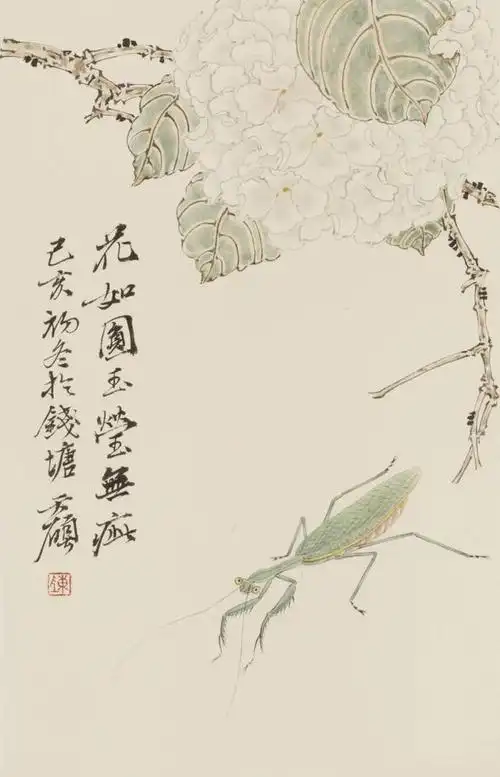 花如圓玉瑩無疵
己亥初冬於錢塘